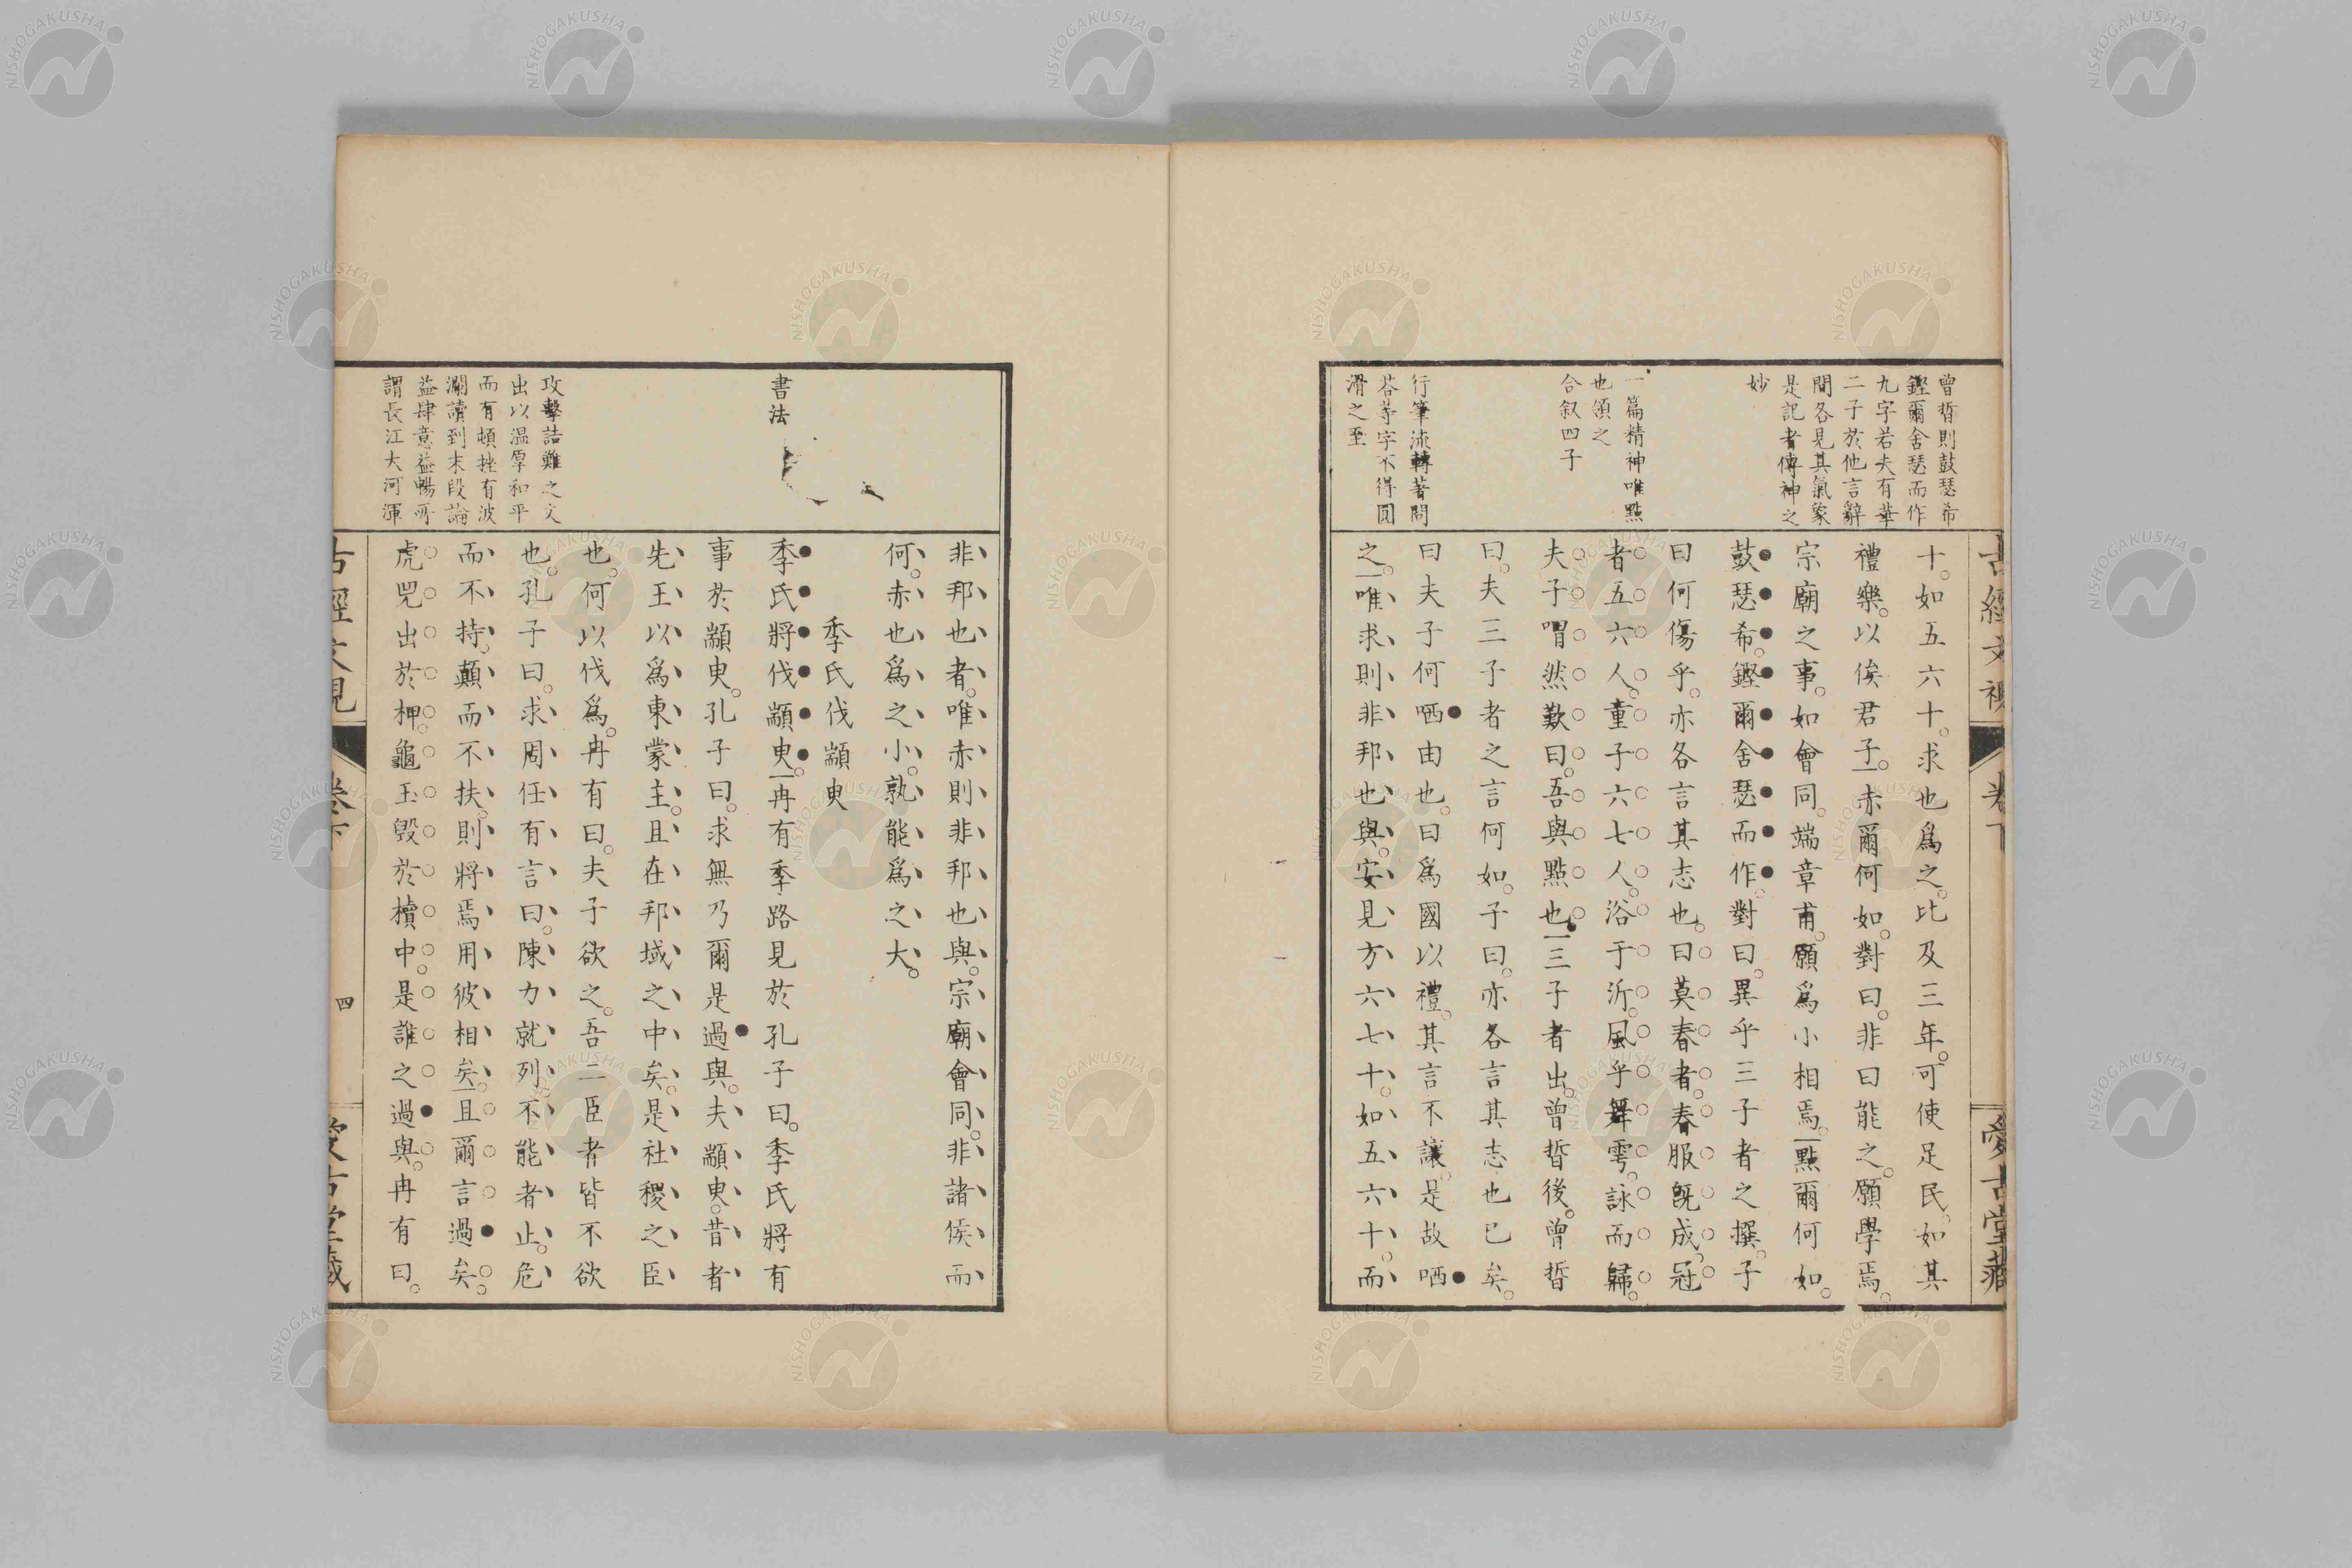 曾晳則鼓瑟希
鏗爾舍瑟而作
九字若夫有華
二子於他言辭
間各見其氣象
是記者傳神之
妙
一篇精神唯點
也領之
合叙四子
行筆流轉著問
荅等字不得圓
滑之至
十。如五六十。求也爲之。比及三年。可使足民。如其
禮樂。以俟君子。赤爾何如。對曰。非曰能之。願學焉。
宗廟之事。如會同。端章甫。願爲小相焉。點爾何如。
鼓瑟希。鏗爾舍瑟而作。對曰。異乎三子者之撰。子
曰何傷乎。亦各言其志也。曰莫春者。春服既成。冠
者五六人。童子六七人。浴于沂。風乎舞雩。詠而歸。
夫子喟然歎曰。吾與點也。三子者出。曾晳後。曾晳
曰。夫三子者之言何如。子曰。亦各言其志也已矣。
曰夫子何哂由也。曰爲國以禮。其言不讓。是故哂
之。唯求則非邦也與。安見方六七十。如五六十。而
古經文視
卷下
愛古堂藏
書法
攻擊詰難之文
出以溫厚和平
而有頓挫有波
瀾讀到末段論
益肆意益暢所
謂長江大河渾
非邦也者。唯赤則非邦也與。宗廟會同。非諸侯而
何。赤也爲之小。孰能爲之大。
季氏伐顓臾
季氏將伐顓臾。冉有季路見於孔子曰。季氏將有
事於顓臾。孔子曰。求無乃爾是過與。夫顓臾。昔者
先王以爲東蒙主。且在邦域之中矣。是社稷之臣
也。何以伐爲。冉有曰。夫子欲之。吾二臣者皆不欲
也。孔子曰。求。周任有言曰。陳力就列。不能者止。危
而不持。顛而不扶。則將焉用彼相矣。且爾言過矣。
虎兕出於柙。龜玉毀於櫝中。是誰之過與。冉有曰。
卷下
四
愛古堂藏